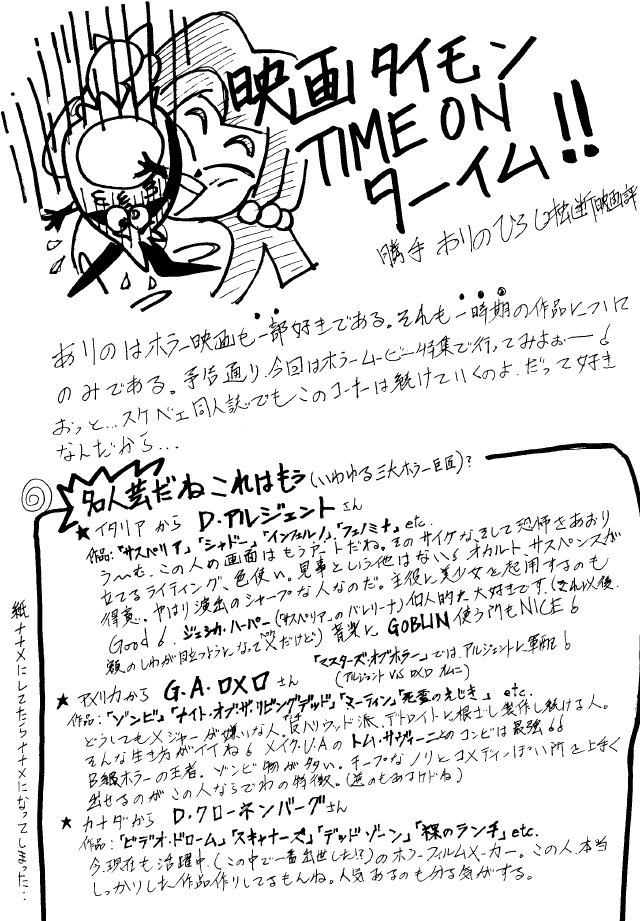 映画タイモン
TIME ON
ターイム!!
勝手 ありのひろし独断映画評
ありのはホラー映画も一部好きである。それも一時期の作品について
のみである。予告通り、今回はホラームービー特集で行ってみよぉーー6
おっと…スケベェ同人誌でもこのコーナーは続けていくのよ、だって好き
なんだから…
名人芸だね これはもう(いわゆる三大ホラー巨匠)?
★イタリア から D・アルジェント さん
作品:「サスペリア」「シャドー」「インフェルノ」「フェノミナ」etc.
う〜む、この人の画面はもうアートだね。そのサイケな、そして恐怖をあおり
立てるライティング、色使い。見事という他はない6 オカルト、サスペンスが
得意。やはり演出のシャープな人なのだ。主役に美少女を起用するのも
Good 6. ジェシカ・ハーパー(「サスペリア」のバレリーナ)個人的に大好きです。(それ以後、
額のしわが目立つようになってメだけど) 音楽に GOBLIN 使う所もNICE 6
「マスターズ・オブ・ホラー」では、アルジェントと
(アルジェント VS ロメロ オムニ)
★ アメリカから G.A.ロメロ さん
作品:「ゾンビ」「ナイト・オブ・ザ・リビングデッド」「マーティン」「死霊のえじき」 etc.
どうしてもメジャーが嫌いな人。反ハリウッド派、デトロイトに根ざし製作し続ける人。
そんな生き方がイイね6 メイク・U.Aのトム・サヴィーニとのコンビは最強66
B級ホラーの王者、ゾンビ物が多い。チープなノリとコメディっぽい所を上手く
出せるのがこの人ならでわの特徴。(逆のもあるけどね)
★ カナダから D.クローネンバーグさん
作品:「ビデオ・ドローム」「スキャナーズ」「デッドゾーン」「裸のランチ」etc.
今、現在も活躍中。(この中で一番出世した!?)のホラーフィルムメーカー。この人、本当
しっかりした作品作りしてるもんね。人気あるのも分る気がする。
紙ナナメにしてたらナナメになってしまった…